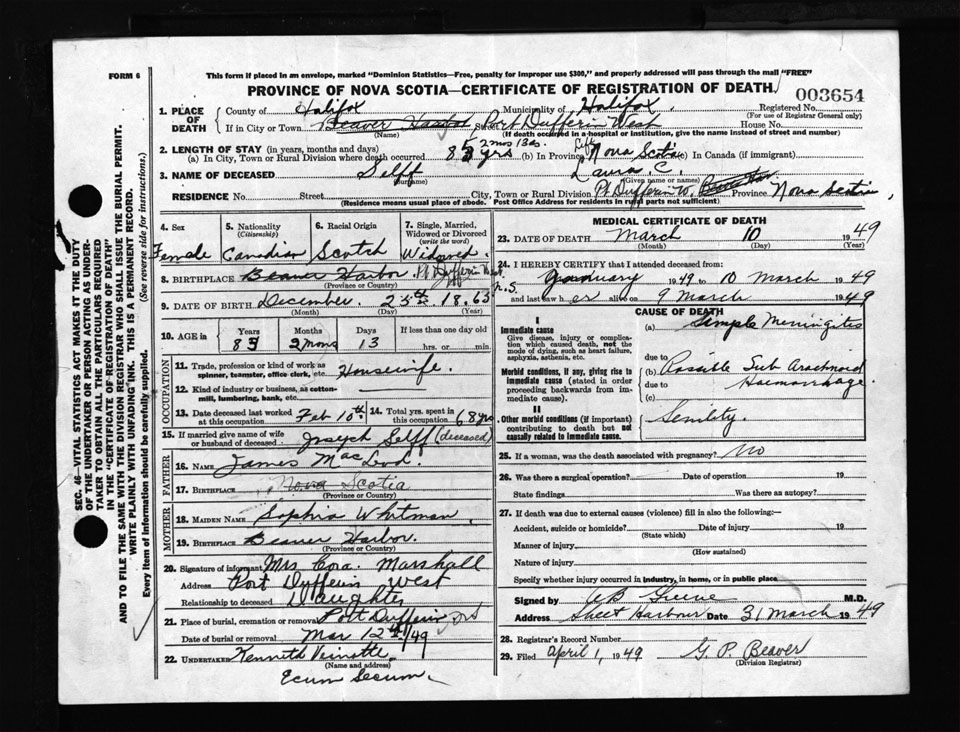 FORM 6
This form if placed in an envelope, marked "Dominion Statistics—Free, penalty for improper use $300," and properly addressed will pass through the mail "FREE"
PROVINCE OF NOVA SCOTIA—CERTIFICATE OF REGISTRATION OF DEATH
003654
1. PLACE OF DEATH
County of Halifax Municipality of Halifax. Registered No.
(For use of Registrar General only)
If in City or Town Beaver Harbor, Street Port Dufferin West House No.
(Name) (If death occurred in a hospital or institution, give the name instead of street and number)
2. LENGTH OF STAY (in years, months and days)
(a) In City, Town or Rural Division where death occurred 85 yrs 2 mos 13 ds. (b) In Province Life Nova Scotia (c) In Canada (if immigrant)
3. NAME OF DECEASED Selff Laura C.
(Surname) (Given name or names)
RESIDENCE No. Street City, Town or Rural Division Pt. Dufferin W. Province Nova Scotia
(Residence means usual place of abode. Post Office Address for residents in rural parts not sufficient)
4. Sex
Female
5. Nationality
(Citizenship)
Canadian
6. Racial Origin
Scotch
7. Single, Married, Widowed or Divorced
(write the word)
Widowed
8. BIRTHPLACE Beaver Harbor Pt Dufferin West N.S.
(Province or Country)
9. DATE OF BIRTH December 25th 1863
(Month) (Day) (Year)
10. AGE in
Years Months Days If less than one day old
85 2 mons 13 hrs. or min.
OCCUPATION
11. Trade, profession or kind of work as spinner, teamster, office clerk, etc. Housewife.
12. Kind of industry or business, as cotton-mill, lumbering, bank, etc.
13. Date deceased last worked at this occupation Feb 10th
14. Total yrs. spent in this occupation 68 yrs
15. If married give name of wife or husband of deceased Joseph Selff (deceased)
FATHER
16. NAME James MacLeod.
17. BIRTHPLACE Nova Scotia
(Province or Country)
MOTHER
18. MAIDEN NAME Sophia Whitman.
19. BIRTHPLACE Beaver Harbor.
(Province or Country)
20. Signature of informant Mrs Cora Marshall
Address Port Dufferin West
Relationship to deceased Daughter
21. Place of burial, cremation or removal Port Dufferin
Date of burial or removal Mar 12th/49
22. UNDERTAKER Kenneth
(Name and address)
Ecum Secum.
MEDICAL CERTIFICATE OF DEATH
23. DATE OF DEATH March 10 1949
(Month) (Day) (Year)
24. I HEREBY CERTIFY that I attended deceased from:
January 1949 to 10 March 1949
and last saw her alive on 9 March 1949
CAUSE OF DEATH
I
Immediate cause
Give disease, injury or complication which caused death, not the mode of dying, such as heart failure, asphyxia, asthenia, etc.
(a) Simple Meningitis
due to
Morbid conditions, if any, giving rise to immediate cause (stated in order proceeding backwards from immediate).
(b) Possible Sub Arachnoid
due to Haemorrhage
(c)
II
Other morbid conditions (if important) contributing to death but not causally related to immediate cause.
Senility.
25. If a woman, was the death associated with pregnancy? No
26. Was there a surgical operation? Date of operation 19
State findings Was there an autopsy?
27. If death was due to external causes (violence) fill in also the following:—
Accident, suicide or homicide? Date of injury 19
(State which)
Manner of injury
(How sustained)
Nature of injury
Specify whether injury occurred in industry, in home, or in public place
Signed by M.D.
Address Sheet Harbour Date 31 March 1949
28. Registrar's Record Number
29. Filed April 1, 1949 G. P. Beaver
(Division Registrar)
SEC. 46—VITAL STATISTICS ACT MAKES IT THE DUTY OF THE UNDERTAKER OR PERSON ACTING AS UNDERTAKER TO OBTAIN ALL THE PARTICULARS REQUIRED IN THE "CERTIFICATE OF REGISTRATION OF DEATH"
AND TO FILE THE SAME WITH THE DIVISION REGISTRAR WHO SHALL ISSUE THE BURIAL PERMIT.
WRITE PLAINLY WITH UNFADING INK. THIS IS A PERMANENT RECORD.
Every item of information should be carefully supplied. (See reverse side for instructions.)